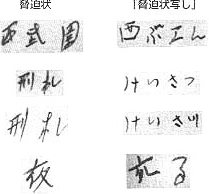 脅迫状 「脅迫状写し」
西武園 西ぶエん
刑札 けいさつ
刑札 けいさつ
夜 死る